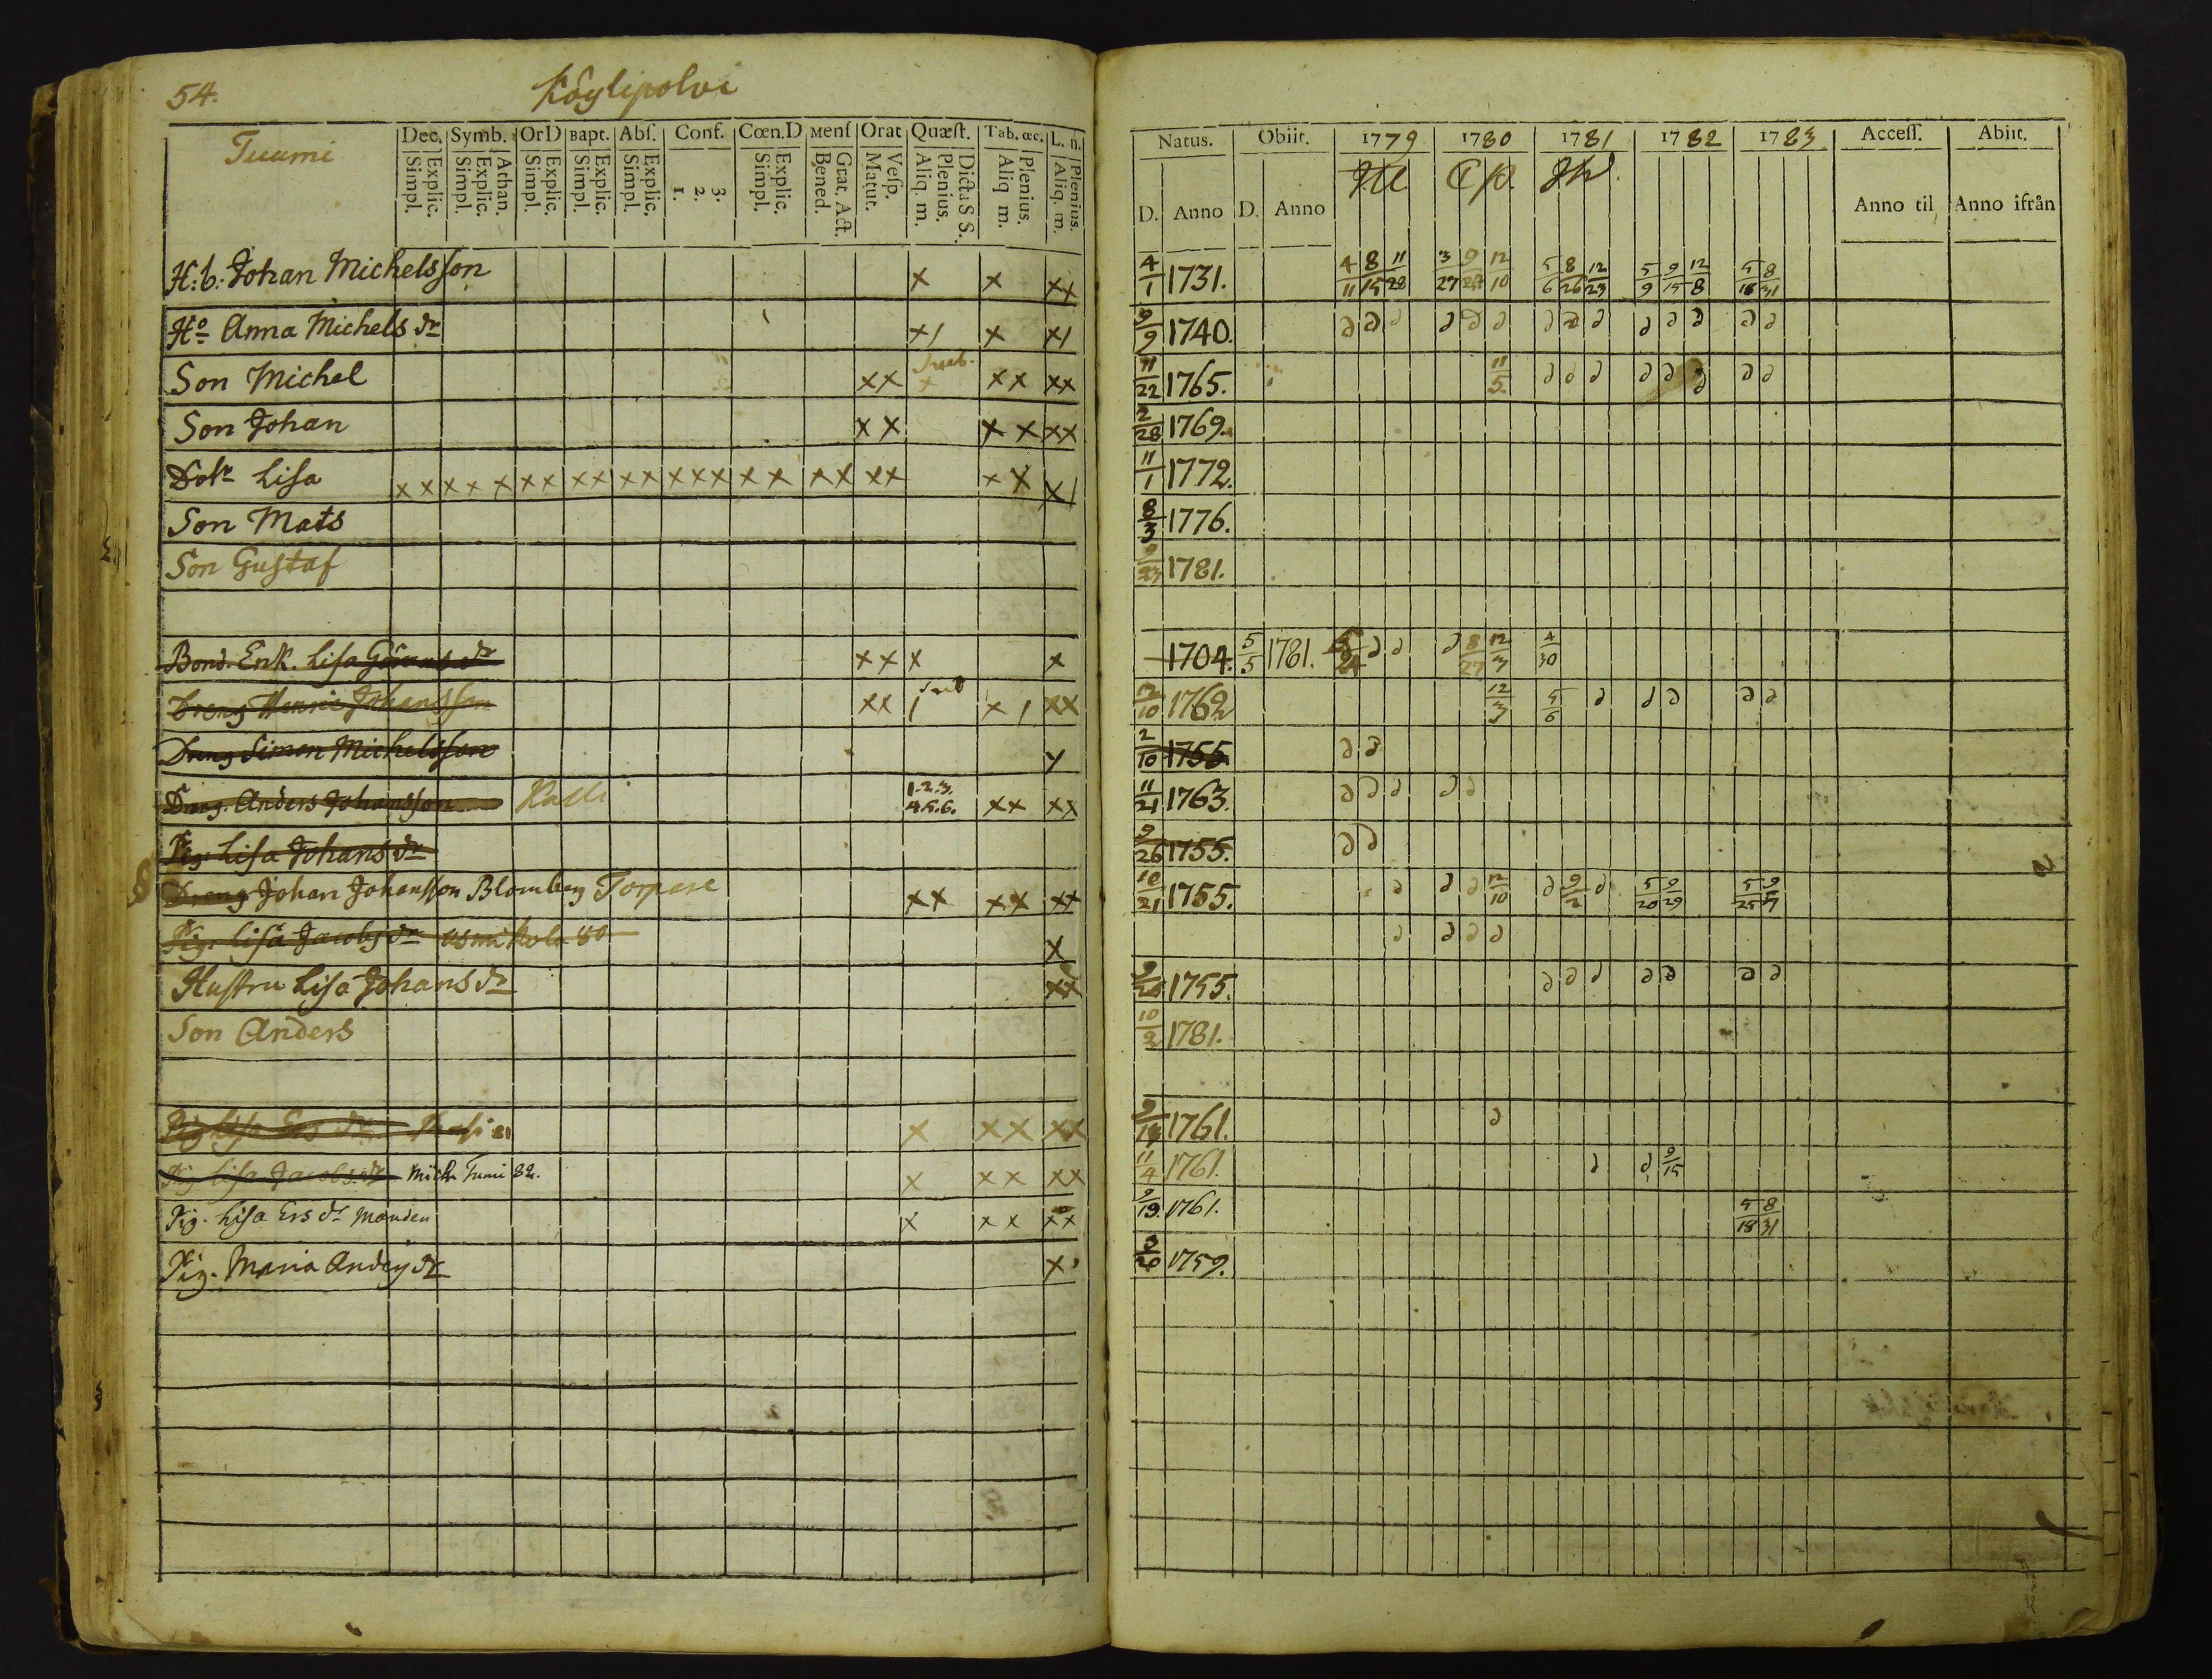 54. Köylipolvi
Tuumi Dec. Symb. OrD Bapt. Abſ. Conf. Cœn.D Menſ Orat Quæſt. Tab. œc. L. n.
Explic. Simpl. Athan. Explic. Simpl. Explic. Simpl. Explic. Simpl. Explic. Simpl. 3. 2. 1. Explic. Simpl. Grat. Act. Bened. Veſp. Matut. Dicta S S. Plenius. Aliq. m. Plenius. Aliq m. Plenius. Aliq. m.
Natus. Obiit. 1779 1780 1781 1782 1783 Acceſſ. Abiit.
D. Anno D. Anno Anno til Anno ifrån
H:b: Johan Michelsson x x xx 4/1 1731. 4/11 8/15 11/28 3/27 9/24 12/10 5/6 8/26 12/23 5/9 9/15 12/8 5/18 8/31
Ho Anna Michels dr x/ x x/ 9/9 1740. ∂ ∂ ∂ ∂ ∂ ∂ ∂ ∂ ∂ ∂ ∂ ∂ ∂ ∂
Son Michel xx x xx xx 11/22 1765. 11/5 ∂ ∂ ∂ ∂ ∂ ∂ ∂ ∂
Son Johan xx xx xx 2/28 1769.
Dotr Lisa xx xxx xx xx xx xxx xx xx xx xx x/ 11/1 1772.
Son Mats 8/3 1776.
Son Gustaf 9/23 1781.
Bond. Enk. Lisa Görans dr xx x x 1704. 5/5 1781. ∂ ∂ ∂ 8/27 12/3 4/30
Dreng Henric Johansson xx / x/ xx 12/10 1762 12/3 5/6 ∂ ∂ ∂ ∂ ∂
Dreng Simon Michelsson 2/10 1755 ∂ ∂
Dreng. Anders Johansson Kalli 1.2.3. 4.5.6. xx xx 11/21 1763. ∂ ∂ ∂ ∂ ∂
Pig. Lisa Johans dr 9/26 1755. ∂ ∂
Dreng Johan Johansson Blomberg Torpare xx xx xx 10/21 1755. ∂ ∂ ∂ 12/10 ∂ 9/2 ∂ 5/20 9/29
Pig. Lisa Jacobs dr x ∂ ∂ ∂ ∂
Hustru Lisa Johans dr xx 9/26 1755. ∂ ∂ ∂ ∂ ∂ ∂ ∂
Son Anders 10/2 1781.
Pig Lisa Ers dr 81 x xx xx 1761. ∂
Pig Lisa Jacobs dr Mich. Tumi 82. x xx xx 11/4 1761. ∂ ∂ 9/15
Pig. Lisa Ers dr x xx xx 9/19. 1761. 5/18 8/31
Pig. Maria Anders dr x 1759.